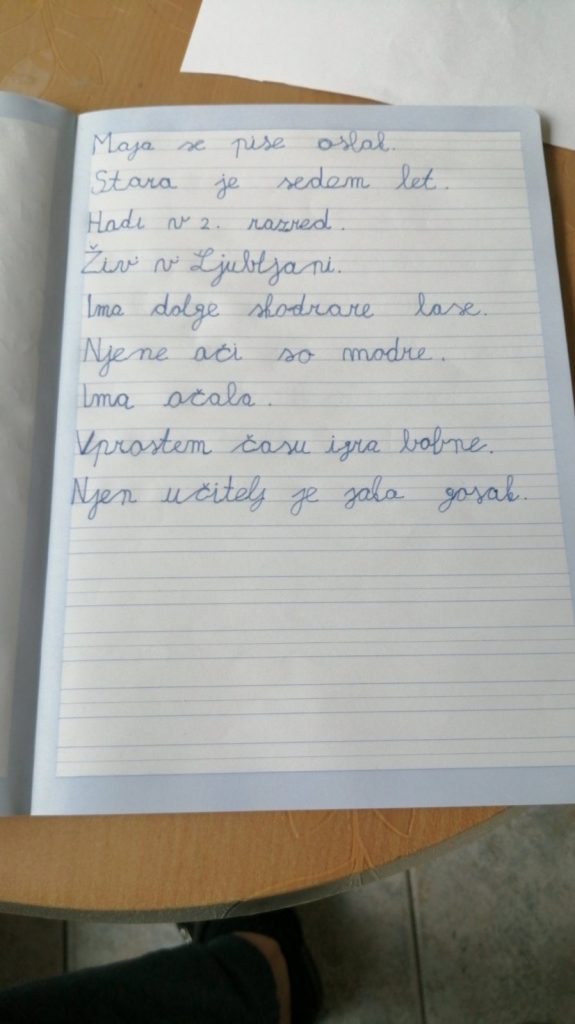 Maja se piše oslak.
Stara je sedem let.
Hadi v 2. razred.
Živi v Ljubljani.
Ima dolge skodrare lase.
Njene oči so modre.
Ima očala.
Vprostem času igra bobne.
Njen učitelj je jaka gosak.